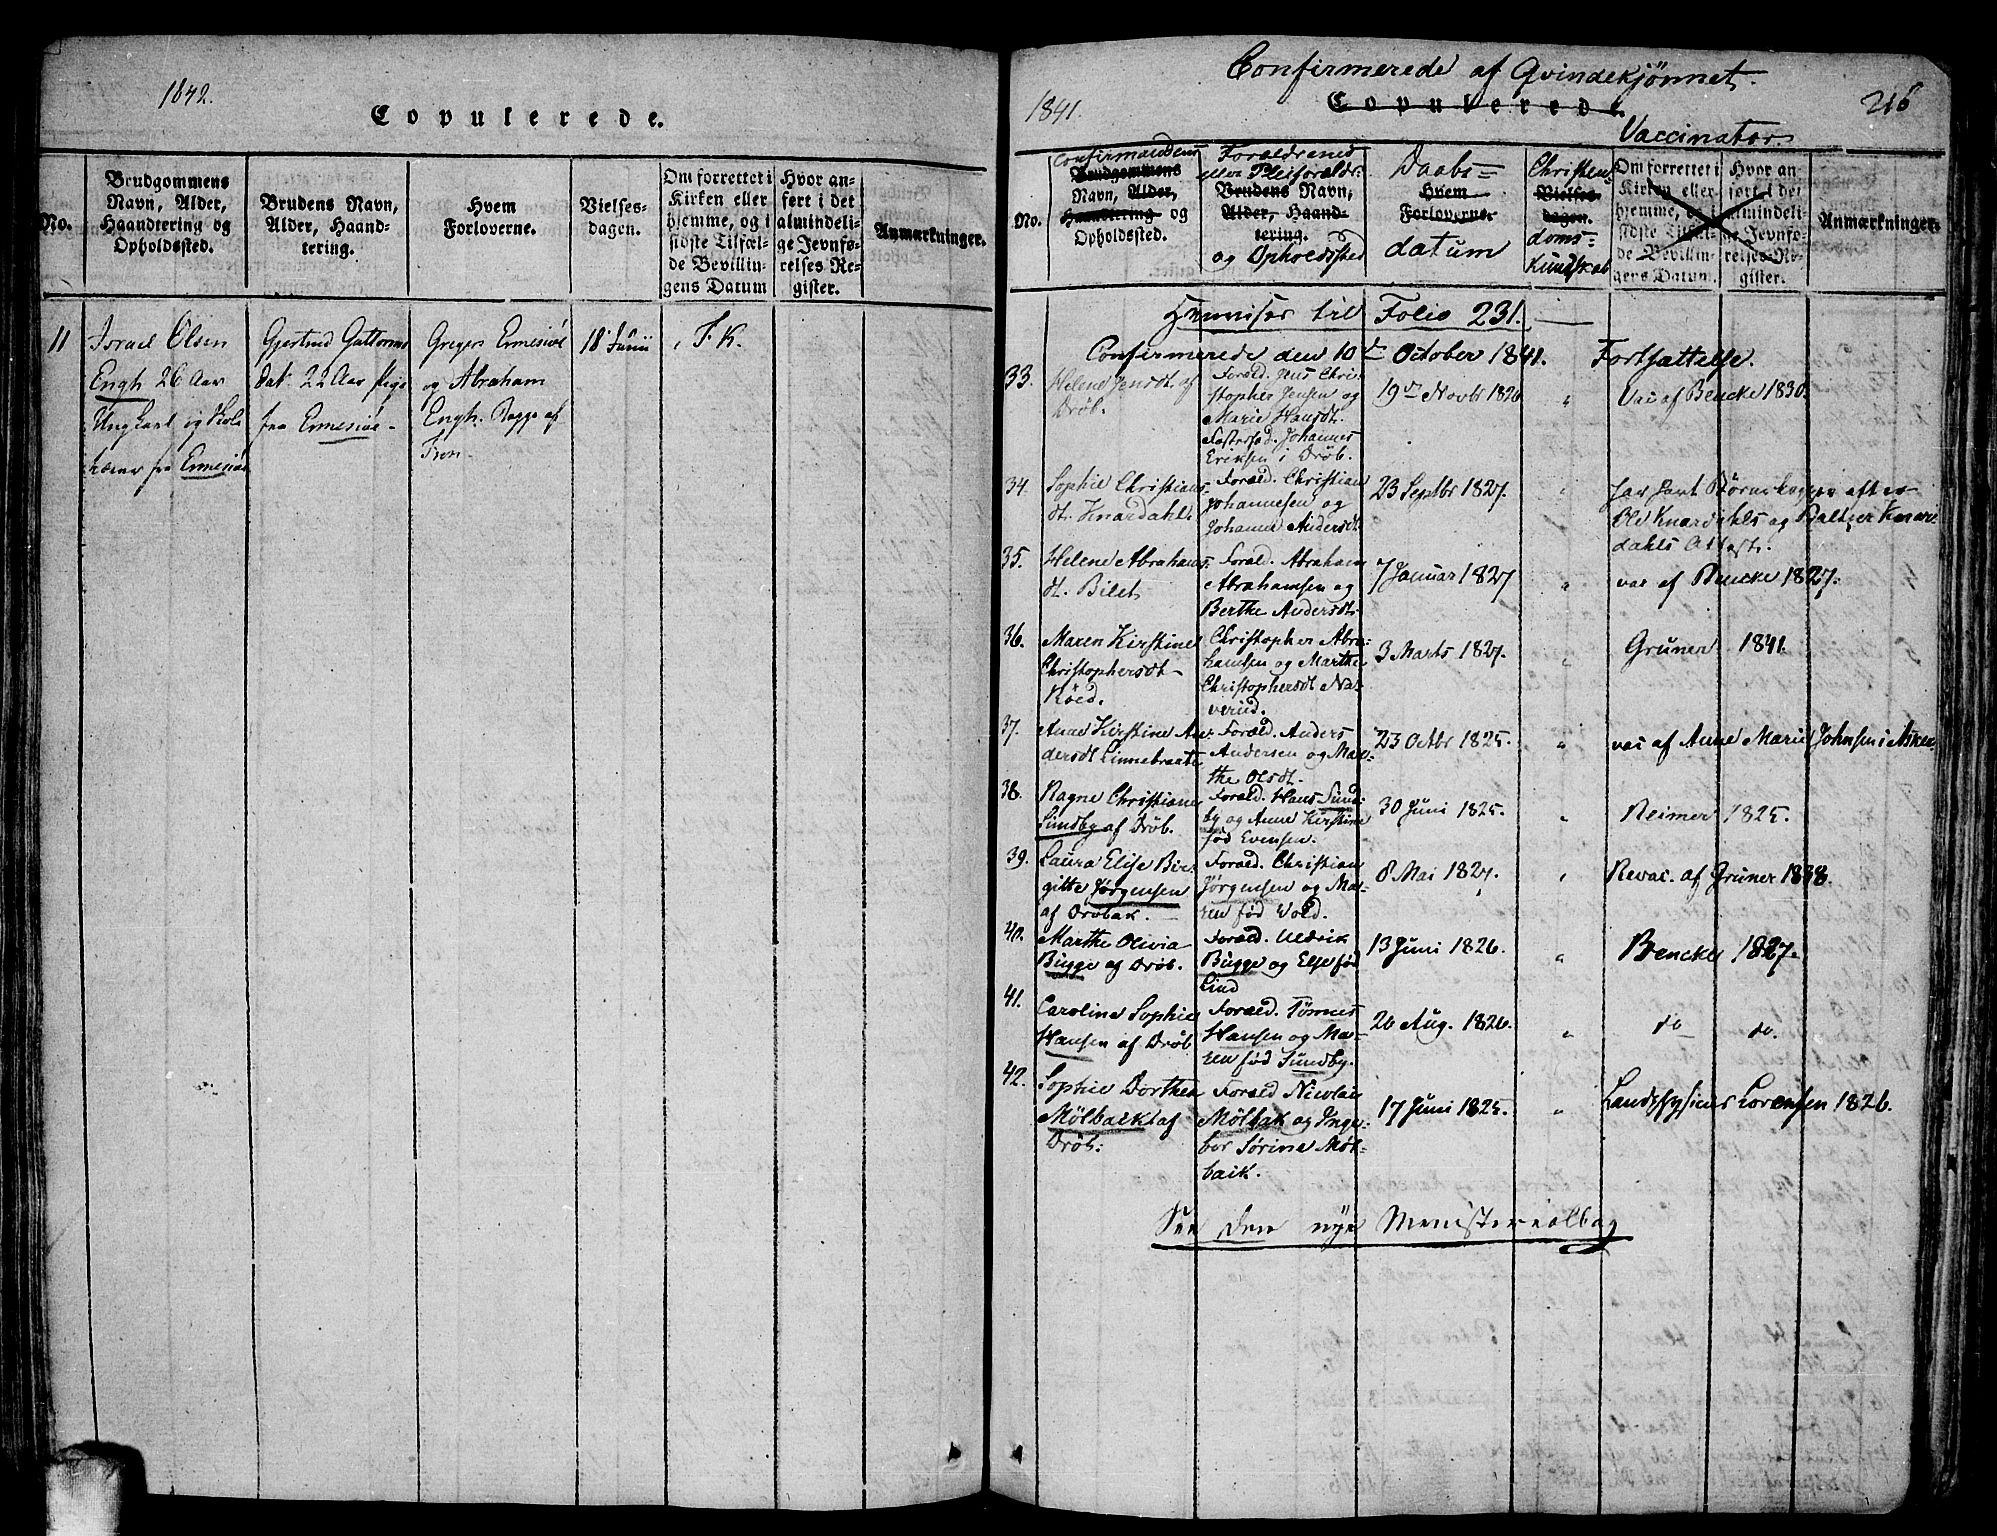 1842.
Copulerede.
No.
Brudgommens
Navn, Alder,
Haandtering og
Opholdssted.
Brudens Navn,
Alder, Haand-
tering.
Hvem
Forloverne.
Vielses-
dagen.
Om forrettet i
Kirken eller
hjemme, og i
sidste Tilfæl-
de Bevillin-
gens Datum
Hvor an-
ført i det
almindeli-
ge Jevnfø-
relses Re-
gister.
Anmærkninger.
11
Israel Olsen
Engh 26 Aar
Ungkarl og Skole
lærer fra Ermesiøe
Gjertrud Guttorms
dat. 22 Aar Pige
fra Ermesiøe
Gregers Ermesiøe
og Abraham
Engh. Begge af
Fron
18 Junii
F. K.
Confirmerede af Qvindekjønnet.
1841.
Copulerede.
216
Vaccinator
No.
Confirmandens
Brudgommens
Navn, Alder,
Haandtering og
Opholdssted.
Forældrenes
eller Pleiforældr.
Brudens Navn,
Alder, Haand-
tering.
og Opholdssted
Daabs=
Hvem
Forloverne.
datum
Christen=
Vielses-
dagen.
doms=
kundskab
Om forrettet i
Kirken eller
hjemme, og i
sidste Tilfæl-
de Bevillin-
gens Datum.
Hvor an-
ført i det
almindeli-
ge Jevnfø-
relses Re-
gister.
Anmærkninger.
Henvises til Folio 231.
Confirmerede den 10de October 1841. Fortsættelse.
33.
Helene Jensdt. af
Dröb.
Foræld. Jens Chri-
stopher Jensen og
Marie Hansdt.
Fosterfad. Johannes
Eriksen i Dröb.
19de Novbr 1826
"
Vac af Bencke 1830.
34.
Sophie Christians-
dt. Knardahl.
Foræld. Christian
Johannesen og
Johanne Andersdt.
23 Septbr 1827.
"
har havt Børnekopper efter
Ole Knardahls og Baltzer Knar-
dahls Attest.
35.
Helene Abrahams-
dt. Bilet
Foræld. Abraham
Abrahamsen og
Berthe Andersdt.
7 Januar 1827
"
vac af Bencke 1827.
36.
Maren Kirstine
Christophersdt
Röed.
Christopher Abra-
hamsen og Marthe
Christophersdt Na-
verud.
3 Marts 1827.
"
Gruner 1841.
37.
Anne Kirstine An-
dersdt Linnebraate
Foræld. Anders
Andersen og Mar-
the Olsdt.
23 Octbr 1825.
"
vac af Anne Marie Johnsen i Asker
38.
Ragne Christiane
Sundby af Dröb.
Foræld. Hans Sund-
by og Anne Kirstine
fød Evensen.
30 Juni 1825.
"
Reimer 1825.
39.
Laura Elise Bir-
gitte Jørgensen
af Dröbak.
Foræld. Christian
Jørgensen og Ma-
ren fød Vold.
8 Mai 1827.
"
Revac. af Gruner 1838.
40.
Marthe Olivia
Bugge af Dröb.
Foræld. Uldrik
Bugge og Else fød
Lind
13 Juni 1826.
"
Bencke 1827.
41.
Caroline Sophie
Hansen af Dröb
Foræld. Tønnes
Hansen og Ma-
ren fød Sundby.
26 Aug. 1826.
"
do do.
42.
Sophie Dorthea
Mølbaik af
Dröb.
Foræld Nicolai
Mølbak og Inge-
bor Sørine Møl-
baik.
17 Juni 1825.
"
Landphysicus Lorensen 1826.
See den nye Ministerialbog